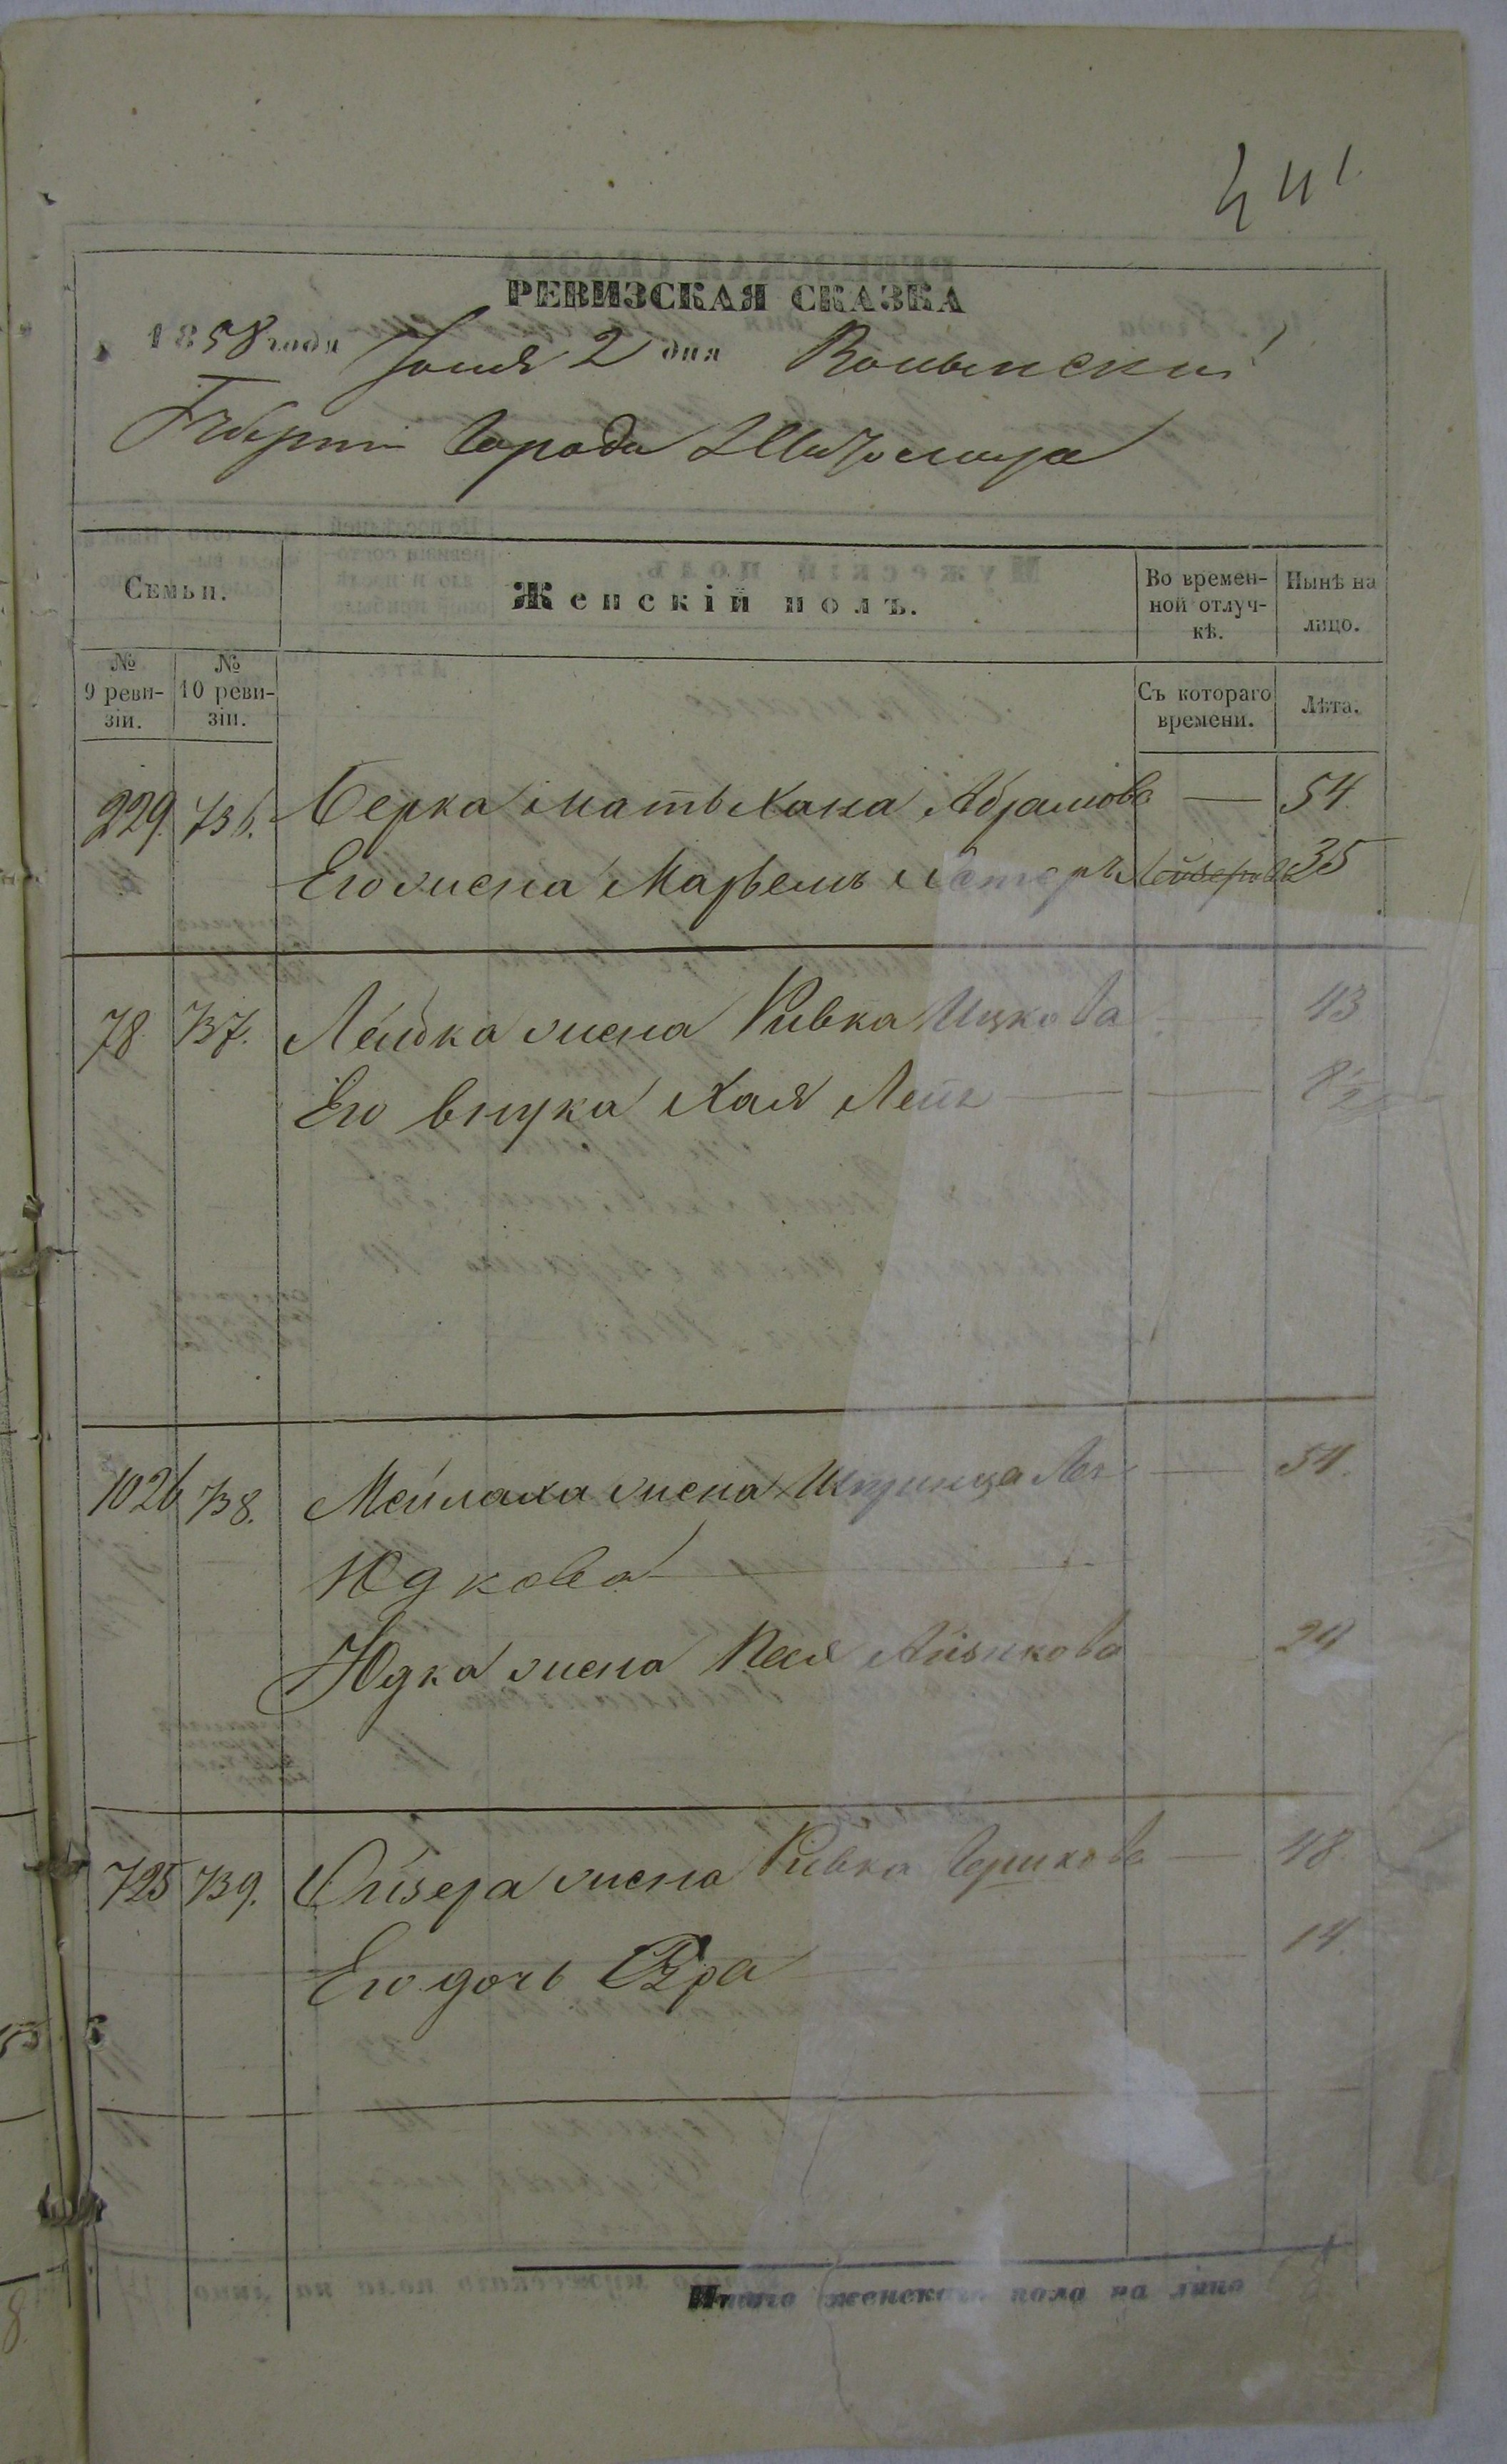 441
РЕВИЗСКАЯ СКАЗКА
1858 года Іюня 2 дня Волынской
Губерніи Города Житомира
Семьи.
Женскій полъ.
Во времен-
ной отлуч-
кѣ.
Нынѣ на
лицо.
№
9 реви-
зіи.
№
10 реви-
зіи.
Съ котораго
времени.
Лѣта.
229. 736. Берка мать Хана Абрамова — 54.
Его жена Марьемъ Лейзерова 35
78 737. Лейбка жена Ривка Ицкова — 43
Его внука Хая — 8½
1026 738. Мейлаха жена Шпринца — 54.
Юдкова
Юдка жена Песя Айзикова 29
725 739. жена Ривка Гершкова — 48.
Его дочь — 14.
Итого женскаго пола на лицо